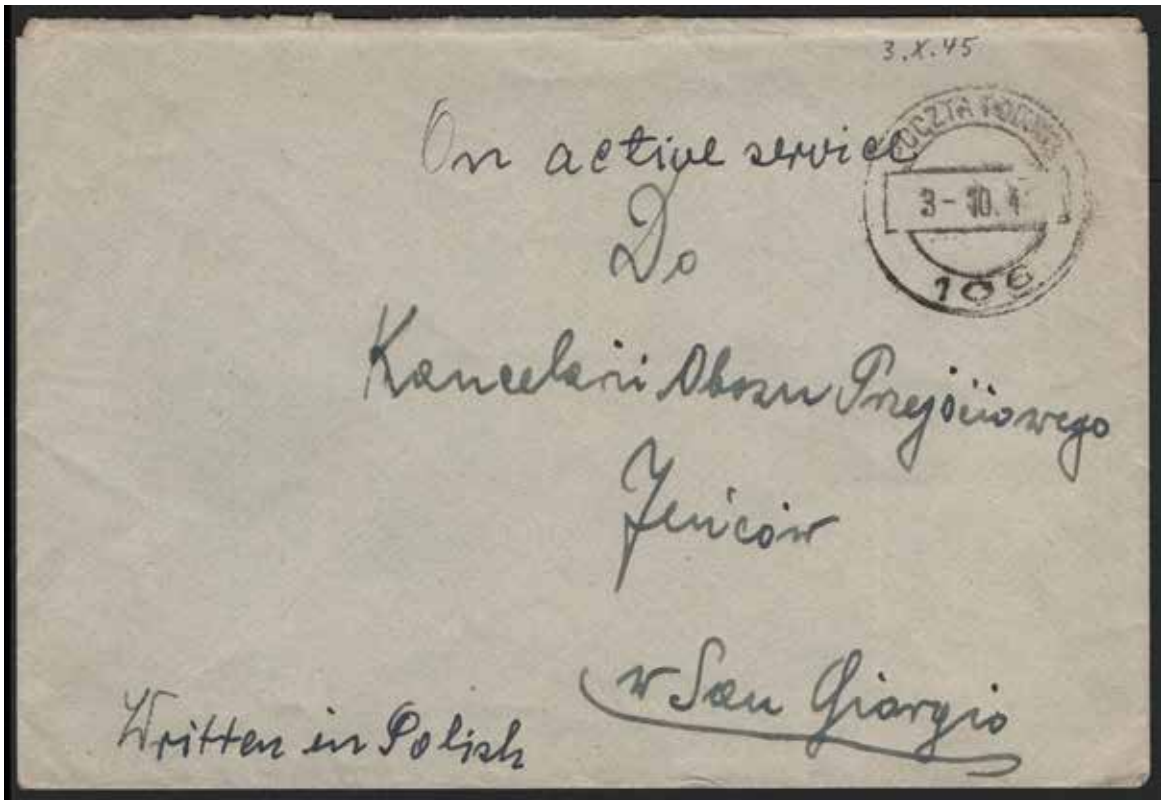 3.X.45
On active service
POCZTA POLOWA
3-10.4
106
Do
Kancelarii Obozu Przejściowego
Jeńców
w San Giorgio
Written in Polish